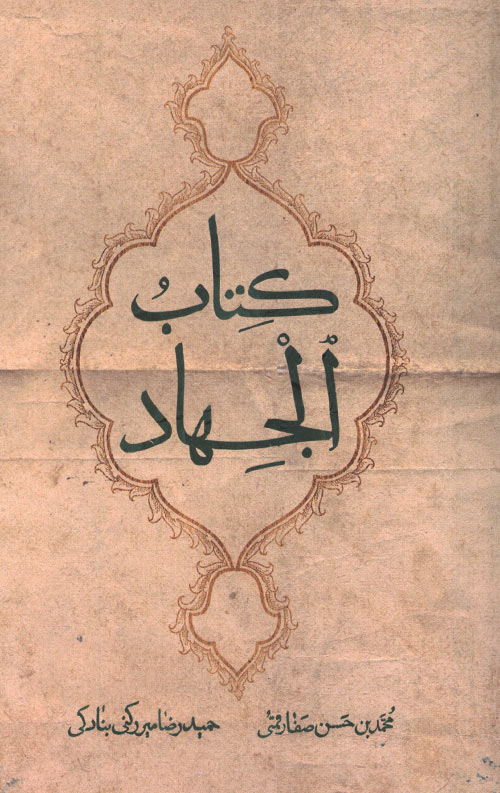 كِتابُ
الْجِهاد
مُحمّد بن حَسن صَفّار قمّی
حمیدرضا میررکنی بنادکی